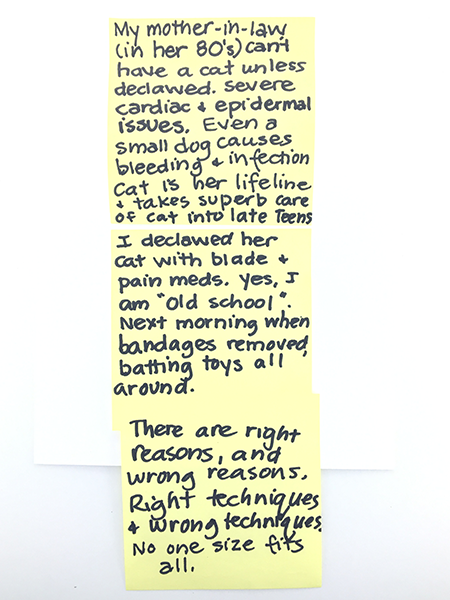 My mother-in-law
(in her 80's) can't
have a cat unless
declawed. severe
cardiac & epidermal
issues. Even a
small dog causes
bleeding & infection
Cat is her lifeline
& takes superb care
of cat into late Teens
I declawed her
cat with blade &
pain meds. yes, I
am "old school".
Next morning when
bandages removed,
batting toys all
around.
There are right
reasons, and
wrong reasons.
Right techniques
& wrong techniques.
No one size fits
all.